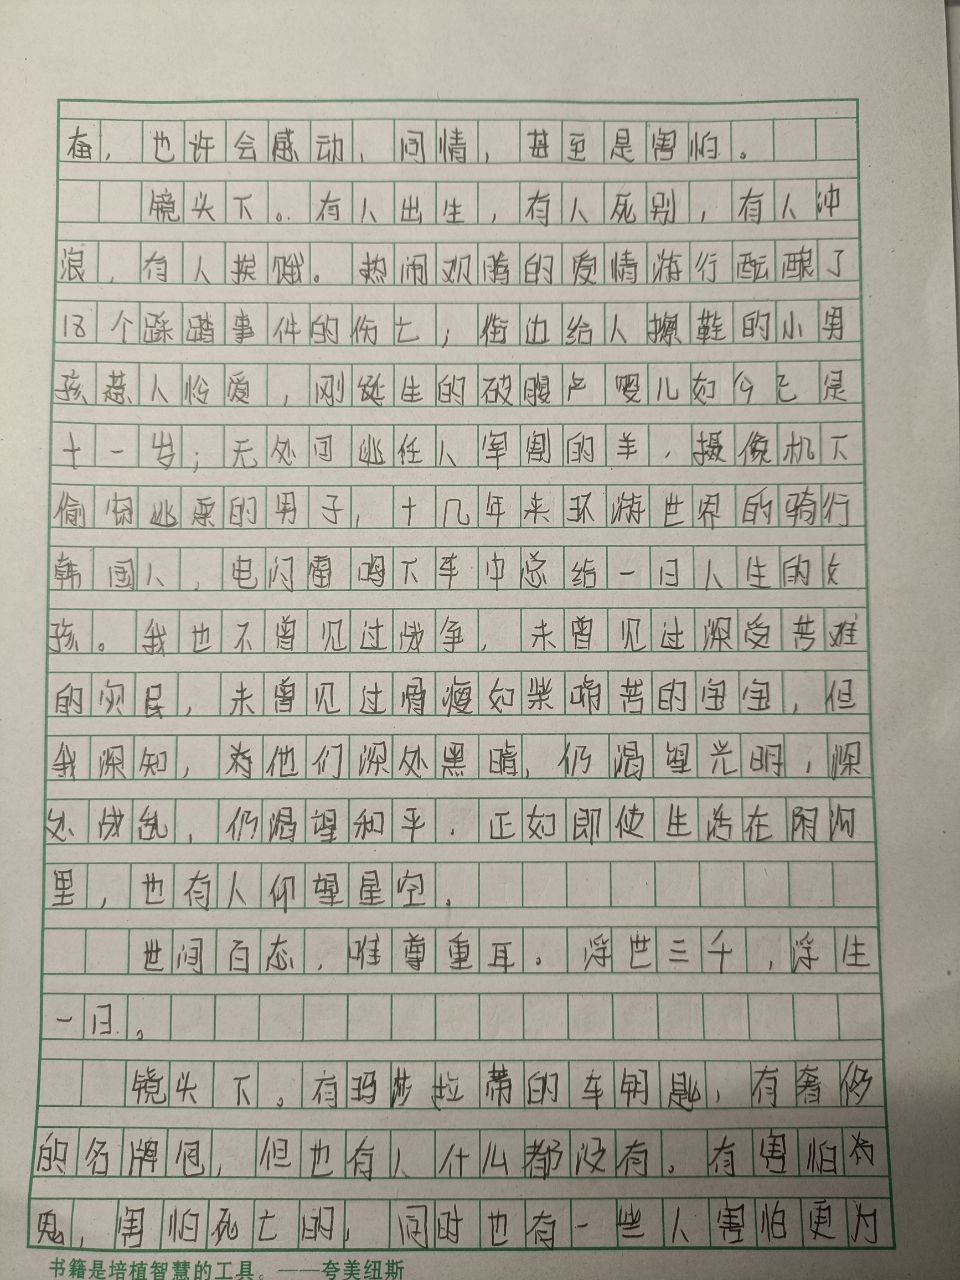 奋，也许会感动、同情，甚至是害怕。
镜头下。有人出生，有人死别，有人冲
浪，有人挨饿。热闹欢腾的爱情游行酝酿了
18个踩踏事件的伤亡，街边给人擦鞋的小男
孩惹人怜爱，刚诞生的破腹产婴儿如今已是
十一岁；无处可逃任人宰割的羊，摄像机下
偷窃逃票的男子，十几年来环游世界的骑行
韩国人，电闪雷鸣下车中总结一日人生的女
孩。我也不曾见过战争，未曾见过深受苦难
的灾民，未曾见过骨瘦如柴啼苦的宝宝，但
我深知，若他们深处黑暗，仍渴望光明，深
处战乱，仍渴望和平．正如即使生活在阴沟
里，也有人仰望星空．
世间百态，唯尊重耳。浮世三千，浮生
一日。
镜头下。有玛莎拉蒂的车钥匙，有奢侈
的名牌包，但也有人什么都没有。有害怕为
鬼，害怕死亡的，同时也有一些人害怕更为
书籍是培植智慧的工具。——夸美纽斯